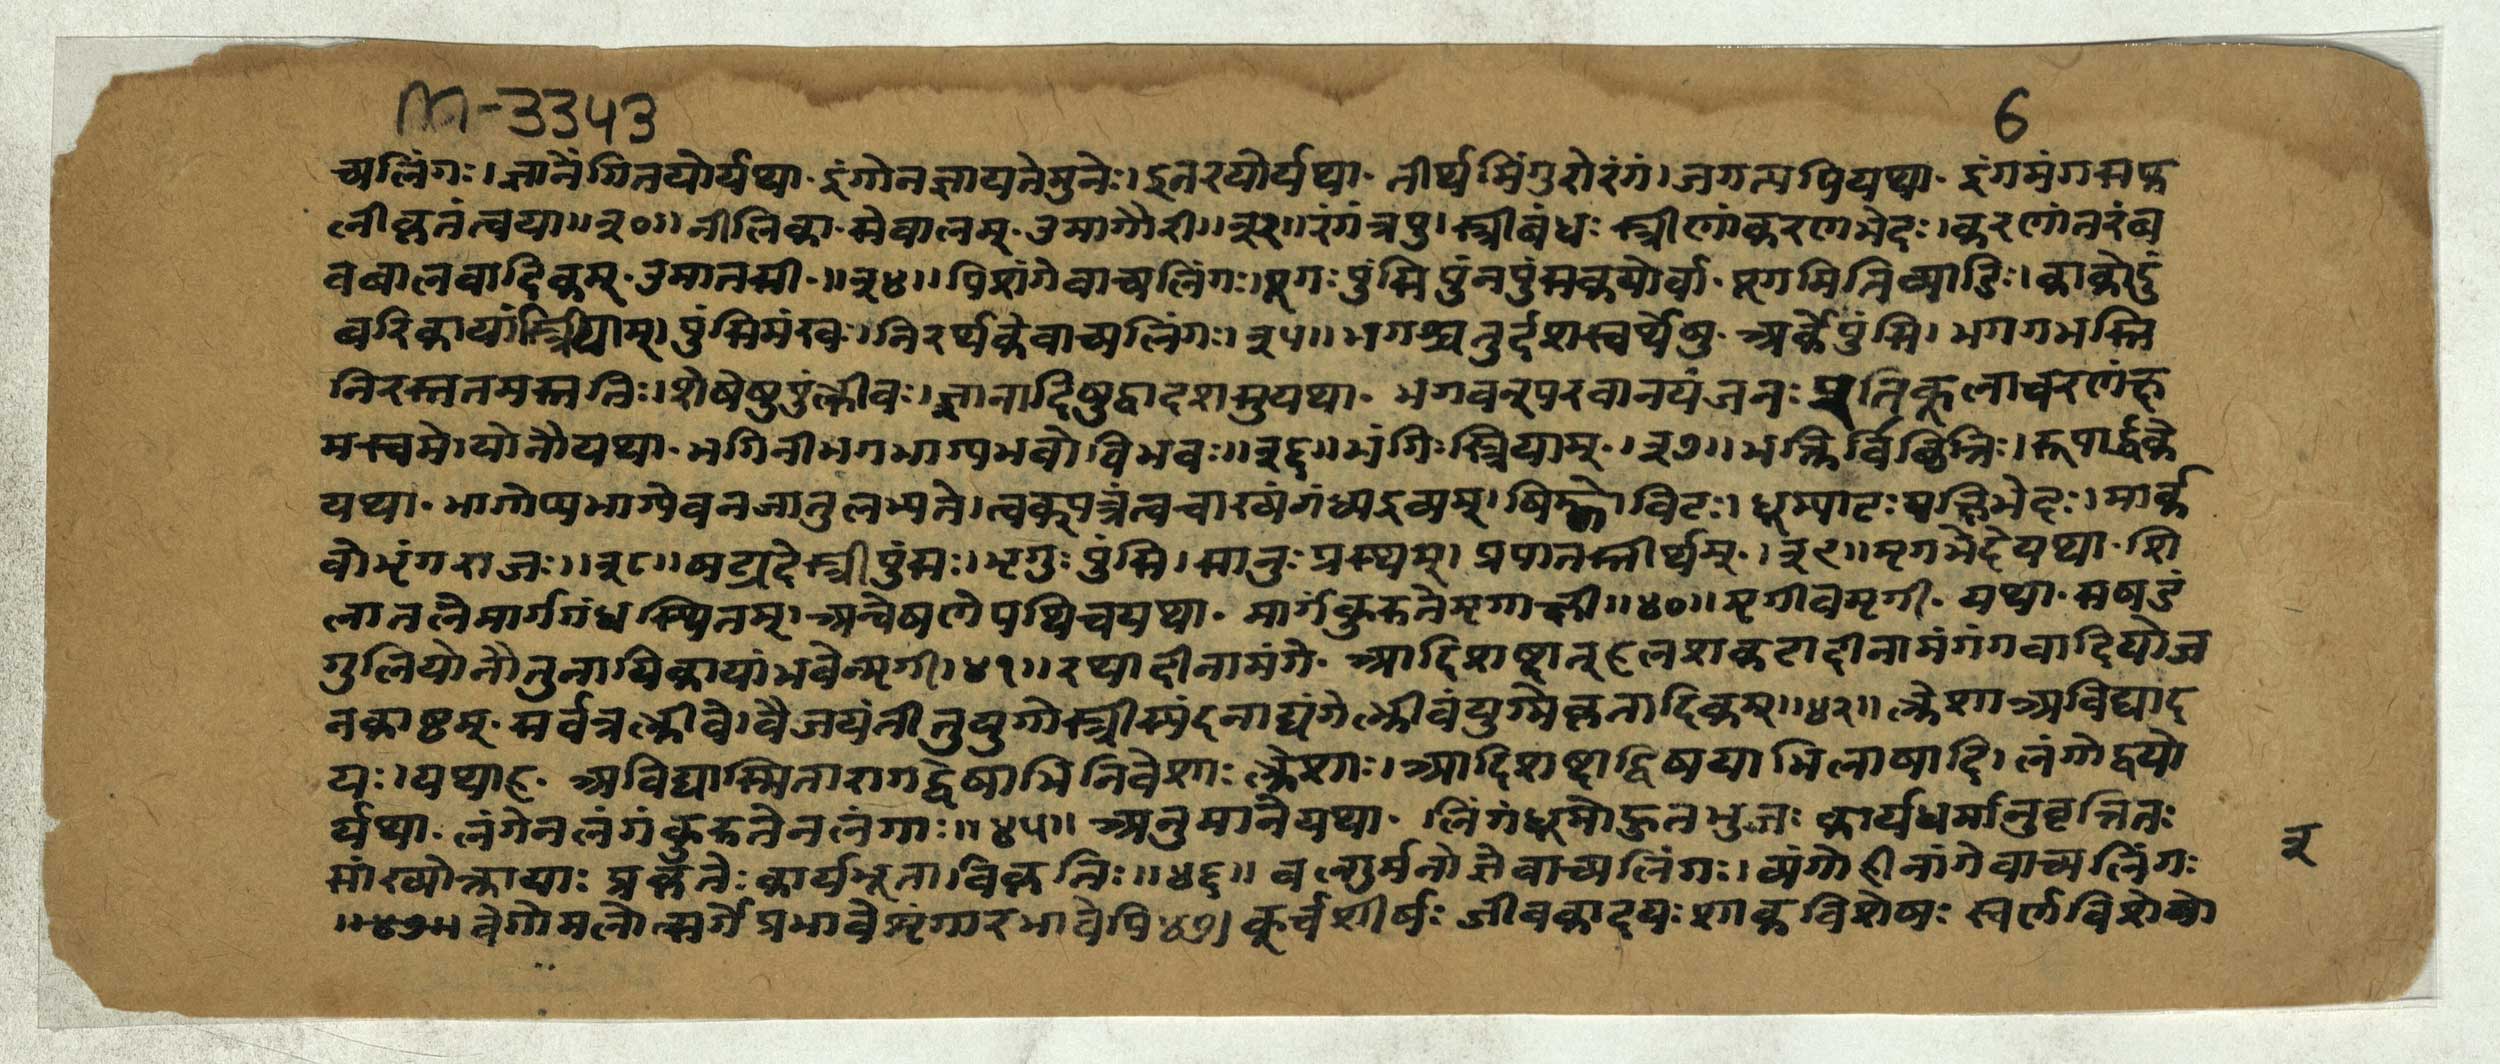 M-3343
6
च्यलिंगः। ज्ञानेंगितयोर्यथा. इंगोनज्ञायतेमुनेः। इतरयोर्यथा. तीर्थमिंगुरोरंगं। जगत्यपियथा. इंगमंगसप
त्नीकृतंत्वया॥३०॥ नीलिका.सेवालम्.उमागौरी॥३३॥ रंगंत्रपु। स्त्रीबंधः स्त्रीणांकरणभेदः। करणांतरंब
वबालवादिकम्.उमातसी.॥३४॥ पिशंगेवाच्यलिंगः। पूगः पुंसि पुंनपुंसकयोर्वा. पूगमितिव्याडिः। काकोदुं
बरिकायांस्त्रियाम्। पुंसिमंखः। निरर्थकेवाच्यलिंगः।३५॥ भगश्चतुर्दशस्वर्थेषु. अर्केपुंसि। भगगभस्ति
निरस्ततमस्ततिः। शेषेषुपुंक्लीबः। ज्ञानादिषुद्वादशसुयथा. भगवन्परवानयंजनः प्रतिकूलाचरणंक्ष
मस्वमे। योनौयथा. भगिनीभगभाग्यभवो विभवः॥३६॥ भंगिः स्त्रियाम्.।३७॥ भक्तिर्विच्छित्तिः। रूपार्द्धके
यथा. भागोप्यभाग्येवनजातुलभ्यते। त्वक्पत्रंत्वचाख्यंगंधद्रव्यम्। षिङ्गोविटः। धूम्याटः पक्षिभेदः। मार्क
वोभृंगराजः॥३८॥ षट्पदेस्त्रीपुंसः। भृगुः पुंसि। सानुः प्रस्थम्। प्रपातस्तीर्थम्.।३९॥ मृगभेदेयथा.शि
लातलेमार्गगंधस्थितम्। अन्वेषणेपथिचयथा. मार्गंकुरुतेमृगाक्षी॥४०॥ मृगीवमृगी. यथा. सषडं
गुलियोनौतुनायिकायांभवेन्मृगी।४१॥ रथादीनामंगे. आदिशब्दात् हलशकटादीनामंगंगवादियोज
नकाष्ठम्. सर्वत्रक्लीबे। वैजयंतीतुयुगोस्त्रीस्यंदनाद्यंगेक्लीबंयुग्मेकृतादिकम्॥४२॥ क्लेशा अविद्याद
यः। यथाह. अविद्यास्मितारागद्वेषाभिनिवेशाः क्लेशाः। आदिशब्दाद्विषयाभिलाषादि। लंगोद्वयो
र्यथा. लंगेनलंगंकुरुतेनलंगाः॥४५॥ अनुमानेयथा. लिंगंधूमोहुतभुजः कार्यधर्मानुवृत्तितः
सांख्योक्तायाः प्रकृतेः कार्यभूता। विकृतिः॥४६॥ वल्गुर्मनोज्ञेवाच्यलिंगः। व्यंगोहीनांगेवाच्यलिंगः
॥४७॥ वेगोमलोत्सर्गेप्रभावेशृंगारभावेपि४७। कूर्चशीर्षः जीवकादयः शाकविशेषः स्वर्णविशेषो
३